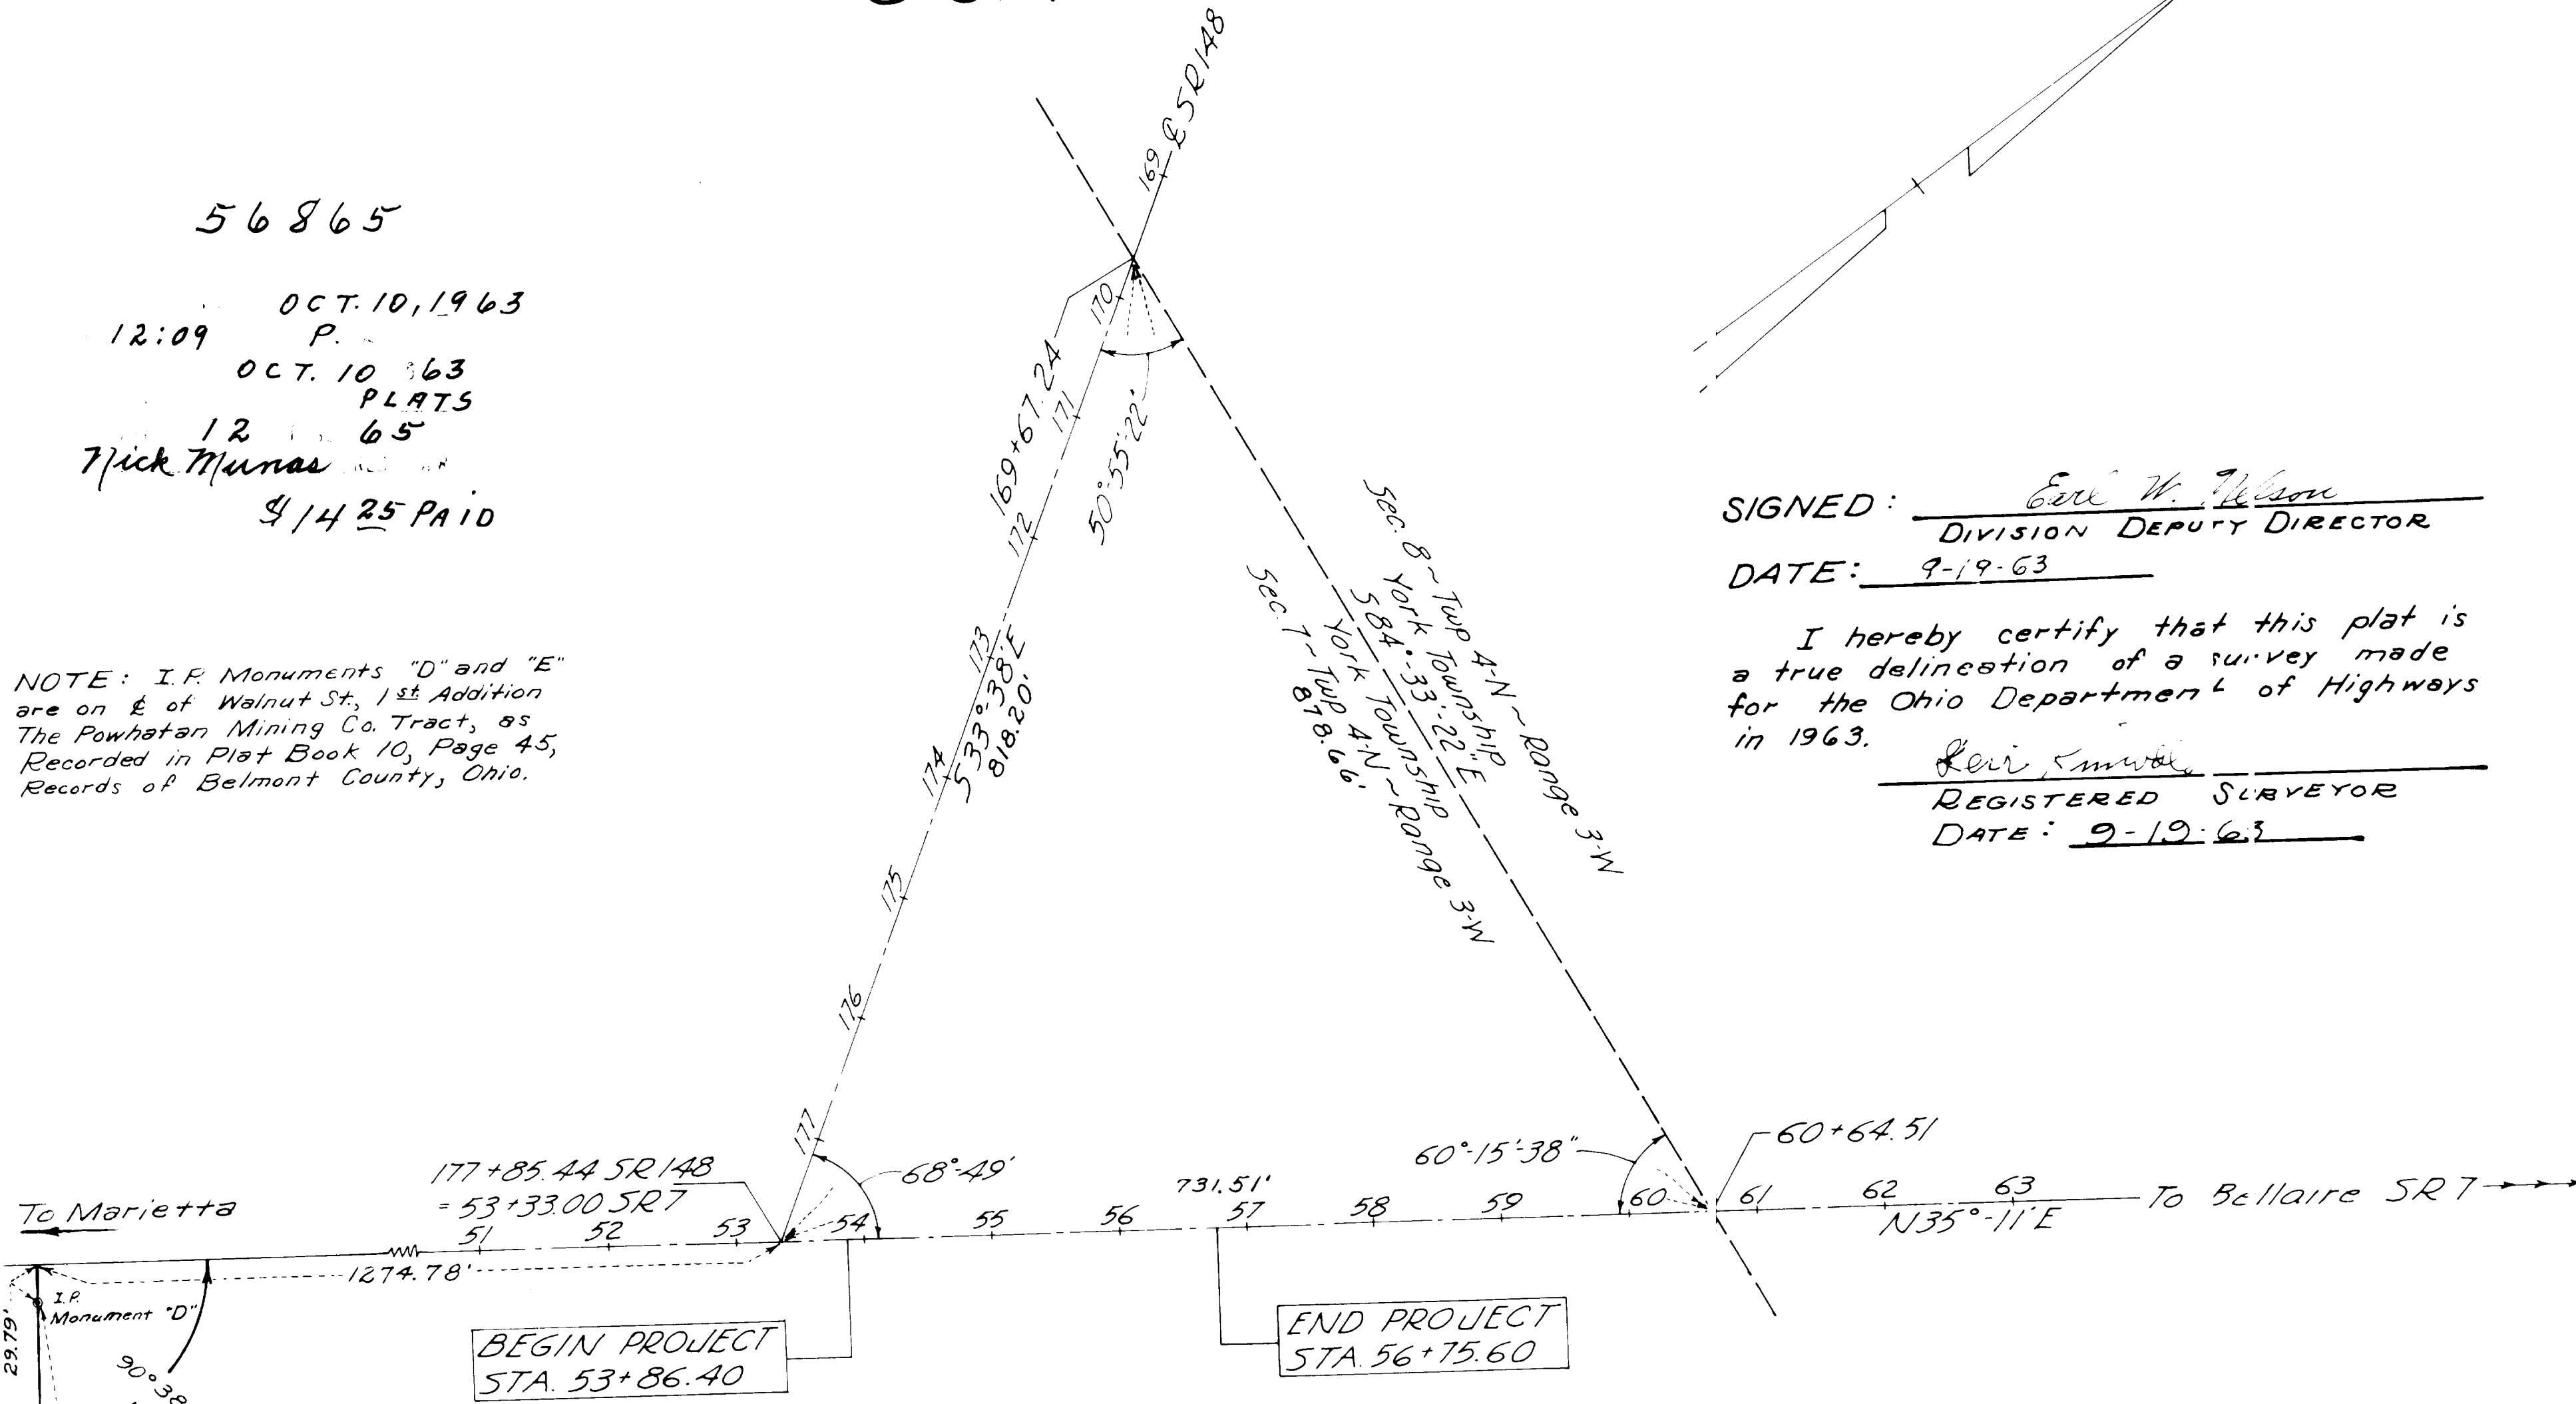 56865
OCT. 10, 1963
12:09 P.
OCT. 10 63
PLATS
12 65
Nick Munas
$14 25 PAID
NOTE: I.P. Monuments "D" and "E"
are on ℄ of Walnut St., 1st Addition
The Powhatan Mining Co. Tract, as
Recorded in Plat Book 10, Page 45,
Records of Belmont County, Ohio.
℄ SR 148
169
170
171
172
173
174
175
176
177
169+67.24
50°-55'-22"
S 33°-38' E
818.20'
Sec. 8 ~ Twp 4-N ~ Range 3-W
York Township
S 84°-33'-22" E
York Township
Sec. 7 ~ Twp 4-N ~ Range 3-W
878.66'
SIGNED: Earl W. Nelson
DIVISION DEPUTY DIRECTOR
DATE: 9-19-63
I hereby certify that this plat is
a true delineation of a survey made
for the Ohio Department of Highways
in 1963.
REGISTERED SURVEYOR
DATE: 9-19-63
177+85.44 SR 148
= 53+33.00 SR 7
68°-49'
60°-15'-38"
60+64.51
731.51'
To Marietta
51 52 53 54 55 56 57 58 59 60 61 62 63
N 35°-11' E
To Bellaire SR 7
1274.78'
I.P.
Monument "D"
29.79'
90°38
BEGIN PROJECT
STA. 53+86.40
END PROJECT
STA. 56+75.60